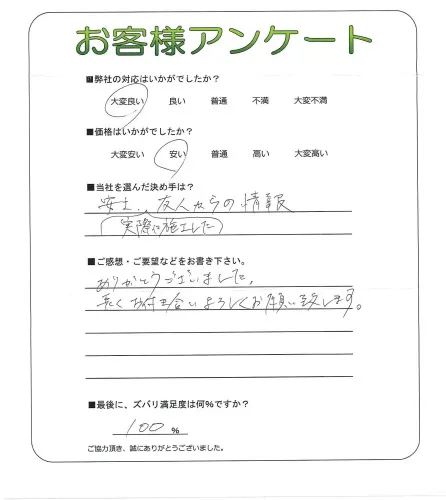 お客様アンケート
■弊社の対応はいかがでしたか？
大変良い 良い 普通 不満 大変不満
■価格はいかがでしたか？
大変安い 安い 普通 高い 大変高い
■当社を選んだ決め手は？
安士、友人からの情報
（実際に施工した）
■ご感想・ご要望などをお書き下さい。
ありがとうございました。
長くお付き合いよろしくお願い致します。
■最後に、ズバリ満足度は何％ですか？
100 ％
ご協力頂き、誠にありがとうございました。